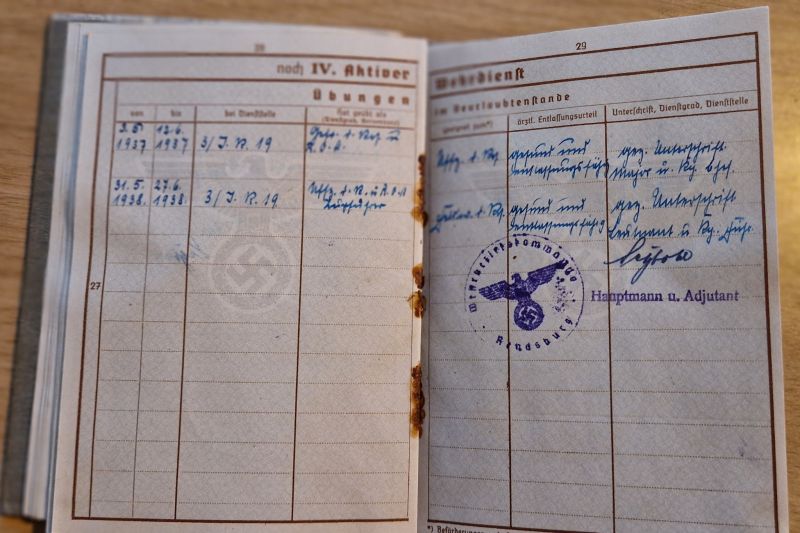 28
noch IV. Aktiver
Übungen
von
bis
bei Dienststelle
Hat geübt als
(Dienstgrad, Verwendung)
3.5.
1937
12.6.
1937
3/ J. R. 19
Gefr. d. Res u
R. O. A.
31. 5.
1938.
27. 6.
1938.
3/ J. R. 19
Uffz. d. R. u. R. O. A
27
29
Wehrdienst
im Beurlaubtenstande
geeignet zum*)
ärztl. Entlassungsurteil
Unterschrift, Dienstgrad, Dienststelle
Uffz. d. Res.
gesund und
entlassungsfähig
gez. Unterschrift
Major u.
d. Res.
gesund und
entlassungsfähig
gez. Unterschrift
Leutnant u.
Wehrbezirkskommando
Rendsburg
Hauptmann u. Adjutant
*) Beförderung